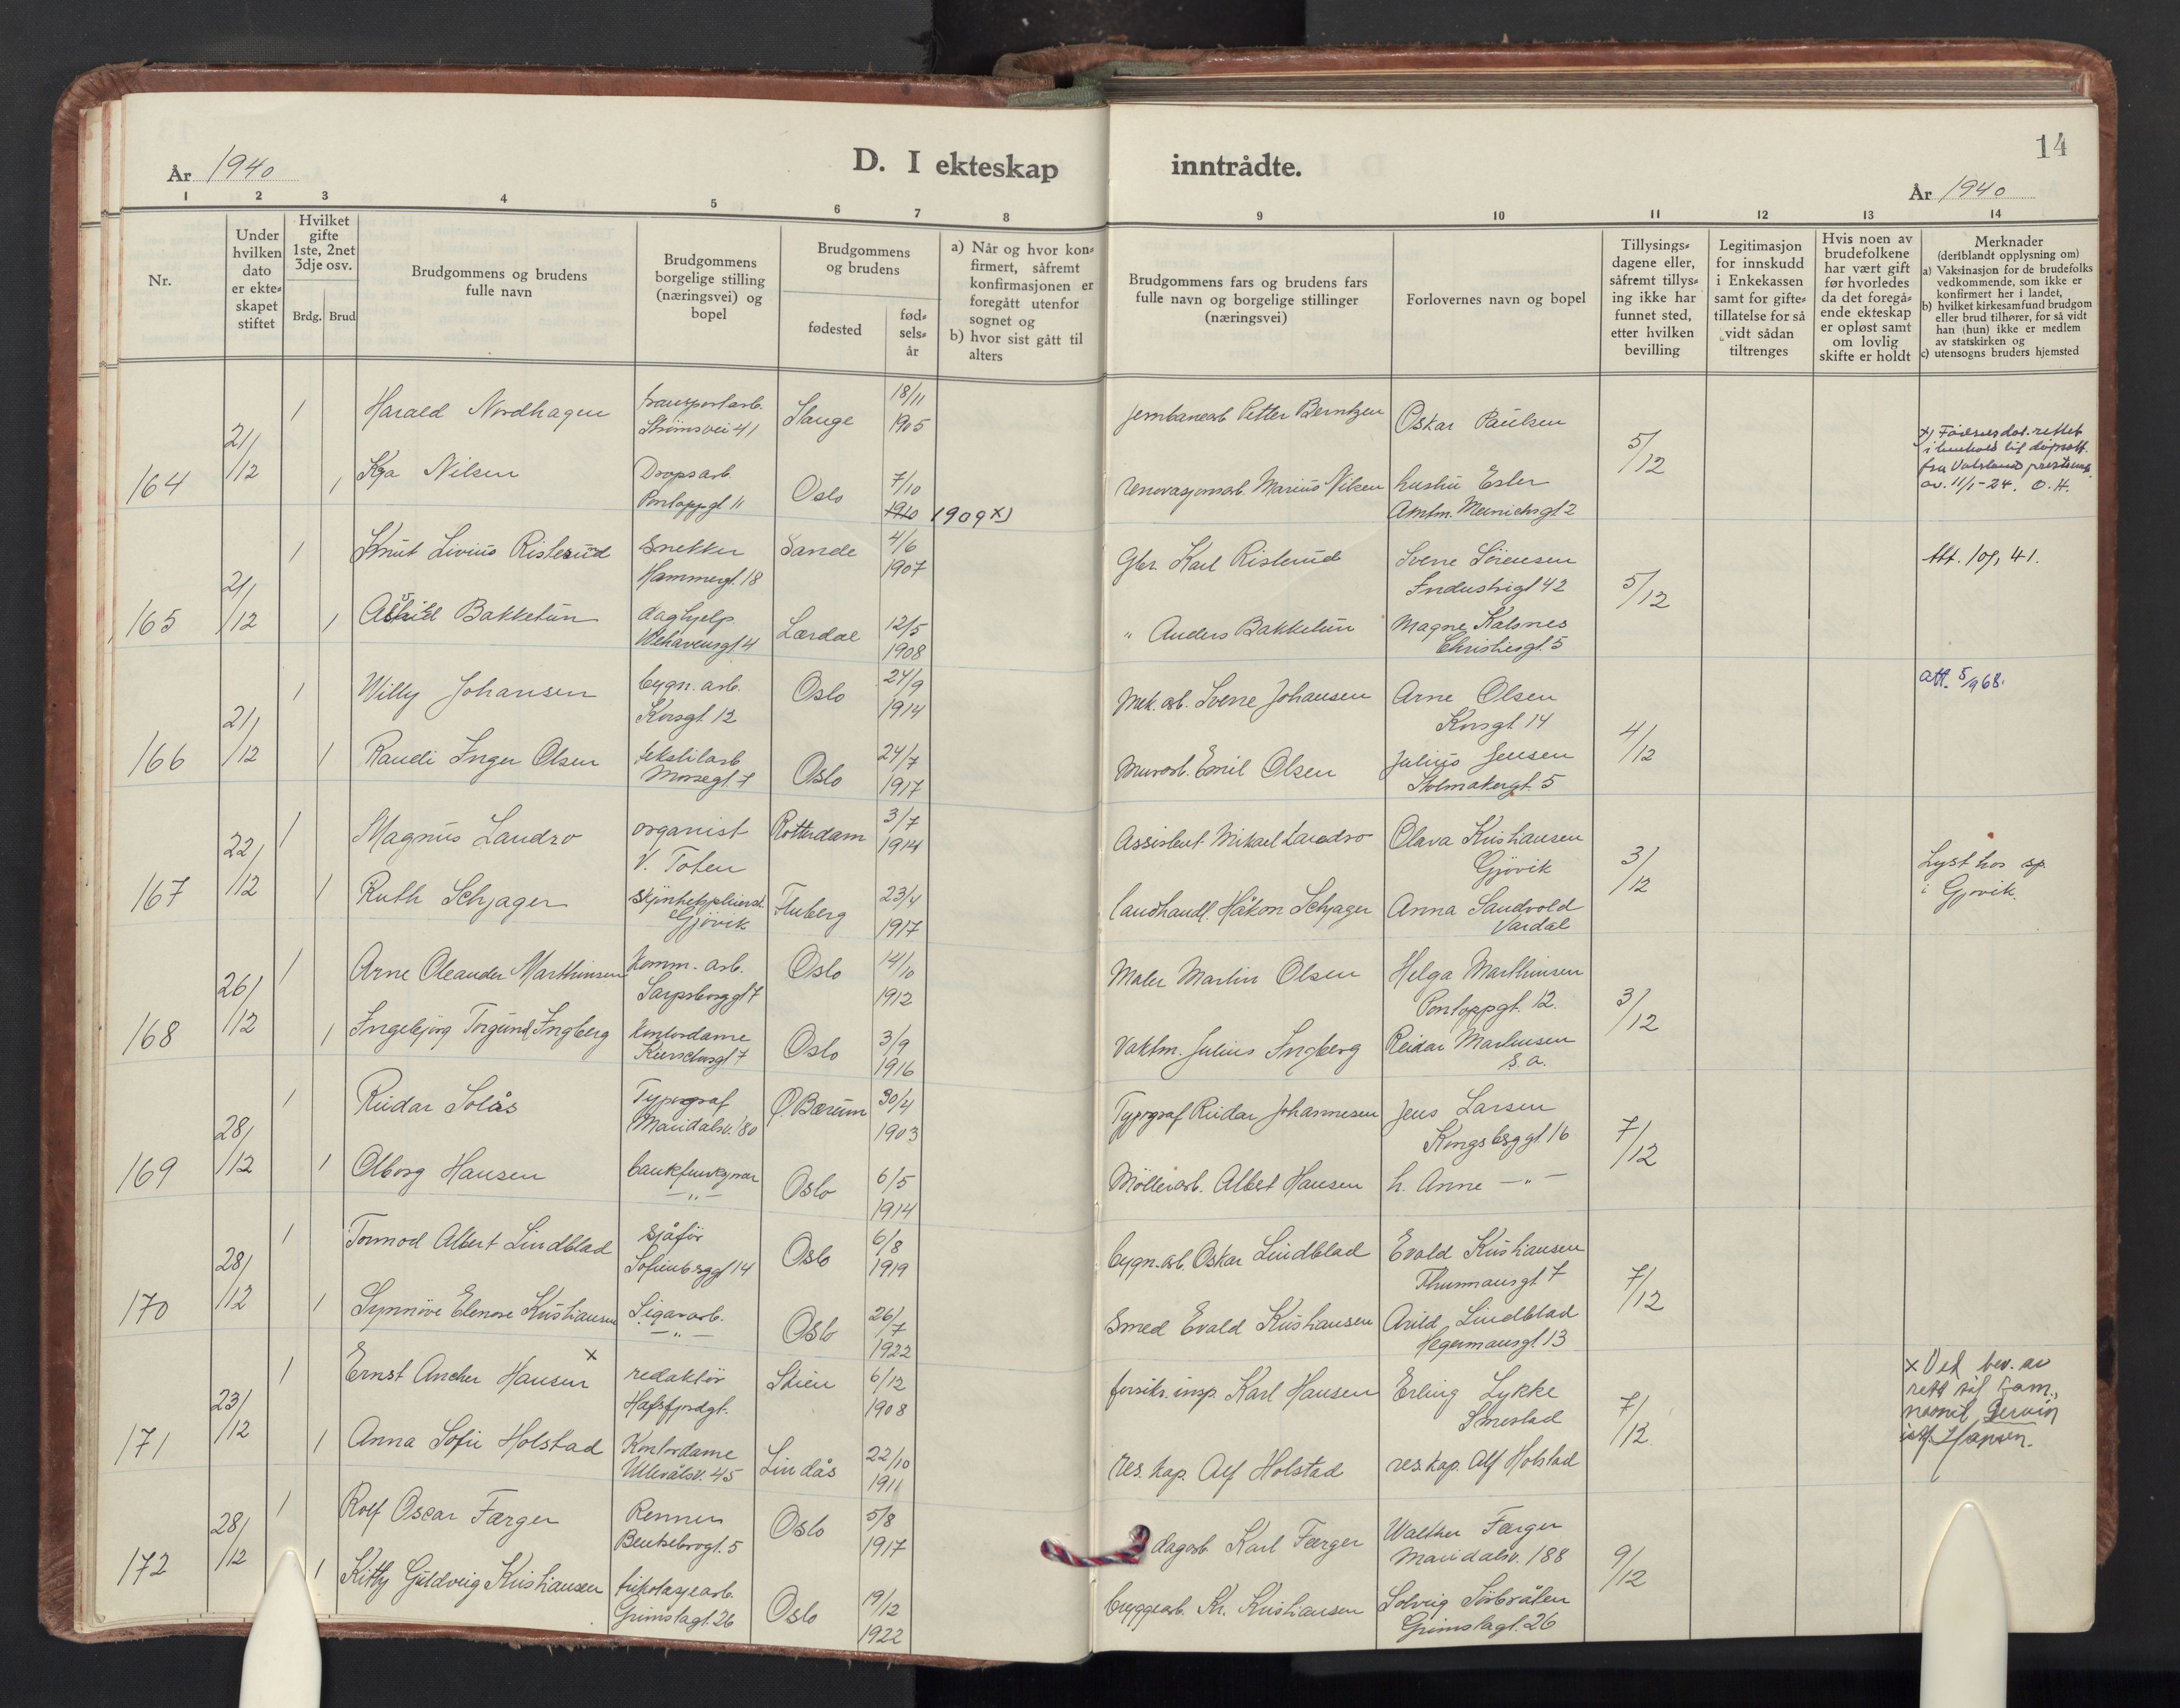 14
D. I ekteskap inntrådte.
År 1940
År 1940
1 2 3 4 5 6 7 8 9 10 11 12 13 14
Nr.
Under hvilken dato er ekte= skapet stiftet
Hvilket gifte 1ste, 2net 3dje osv.
Brdg. Brud
Brudgommens og brudens fulle navn
Brudgommens borgelige stilling (næringsvei) og bopel
Brudgommens og brudens
fødested
fød= sels= år
a) Når og hvor kon= firmert, såfremt konfirmasjonen er foregått utenfor sognet og
b) hvor sist gått til alters
Brudgommens fars og brudens fars fulle navn og borgelige stillinger (næringsvei)
Forlovernes navn og bopel
Tillysings= dagene eller, såfremt tillys= ing ikke har funnet sted, etter hvilken bevilling
Legitimasjon for innskudd i Enkekassen samt for gifte= tillatelse for så vidt sådan tiltrenges
Hvis noen av brudefolkene har vært gift før hvorledes da det foregå= ende ekteskap er opløst samt om lovlig skifte er holdt
Merknader
(deriblandt opplysning om)
a) Vaksinasjon for de brudefolks vedkommende, som ikke er konfirmert her i landet,
b) hvilket kirkesamfund brudgom eller brud tilhører, for så vidt han (hun) ikke er medlem av statskirken og
c) utensogns bruders hjemsted
1 Harald Nordhagen transportarb. Strømsvei 41 Stange 18/11 1905 jernbanearb Petter Berntzen Oskar Paulsen
164 21/12 1 Kya Nilsen Dropsarb. Pontoppgt 11 Oslo 7/10 1910 1909 x) renovasjonsarb. Marius Nilsen hustru Ester Amtm. Meinichsgt 2 5/12
x) Fødselsdat. rettet i henhold til dåpsatt. fra Vålerenga prestekont. av. 11/1-24. O.H.
1 Knut Livius Risterud Snekker Hammergt. 18 Sande 4/6 1907 Gbr. Karl Risterud Sverre Sørensen Industrigt 42 Att. 10/1 41.
165 21/12 1 Astrid Bakketun daghjelp Welhavensgt 4 Lærdal 12/5 1908 " Anders Bakketun Magne Kalsnes Christiesgt. 5 5/12
1 Willy Johansen bygn. arb. Korsgt. 12 Oslo 24/9 1914 Mek. arb. Sverre Johansen Arne Olsen Korsgt. 14 att. 5/9 68.
166 21/12 1 Randi Inger Olsen tekstilarb Morsegt. 7 Oslo 24/7 1917 Murarb. Emil Olsen Julius Jensen Stolmakergt. 5 4/12
1 Magnus Landro organist V. Toten Rotterdam 3/7 1914 Assistent Mikael Landro Olava Kristiansen Gjøvik
167 22/12 1 Ruth Schjager skjønhetspleiersk Gjøvik Fluberg 23/4 1917 landhandl. Håkon Schjager Anna Sandvold Vardal 3/12
Lyst hos sp. i Gjøvik.
1 Arne Oleander Marthinsen Komm. arb. Sarpsborggt 7 Oslo 14/10 1912 Maler Martin Olsen Helga Marthinsen Pontoppgt. 12.
168 26/12 1 Ingebjørg Torgund Ingberg Kontordame Kierschowsgt 7 Oslo 3/9 1916 Vaktm. Julius Ingberg Reidar Martinsen s.a. 3/12
1 Reidar Solås Typograf Maridalsv. 180 Ø. Bærum 30/4 1903 Typograf Reidar Johannesen Jens Larsen Kongsberggt. 16
169 28/12 1 Olborg Hansen bankfunksjonær — " — Oslo 6/5 1914 Møllerarb. Albert Hansen h. Anne — " — 7/12
1 Tormod Albert Lindblad sjåfør Sofienberggt 14 Oslo 6/8 1919 bygn. arb. Oskar Lindblad Evald Kristiansen Thurmannsgt. 7
170 28/12 1 Synnøve Elenore Kristiansen Sigararb. — " — Oslo 26/7 1922 Smed Evald Kristiansen Arild Lindblad Hegermansgt 13 7/12
1 Ernst Ancher Hansen x redaktør Hafsfjordgt. Skien 6/12 1908 forsikr. insp. Karl Hansen Erling Lykke Smestad
171 23/12 1 Anna Sofie Holstad Kontordame Ullevålsv. 45 Lindås 22/10 1911 res. kap. Alf Holstad res. kap. Alf Holstad 7/12
x Ved bev. av rett til fam. navnet Gervin istf. Hansen.
1 Rolf Oscar Færger Renner Bentsebrogt. 5 Oslo 5/8 1917 dagarb Karl Færger Walther Færger Maridalsv. 188
172 28/12 1 Kitty Guldveig Kristiansen trikotasjearb. Grimstagt. 26 Oslo 19/12 1922 bryggearb. Kr. Kristiansen Solveig Sörbråten Grimstagt. 26 9/12